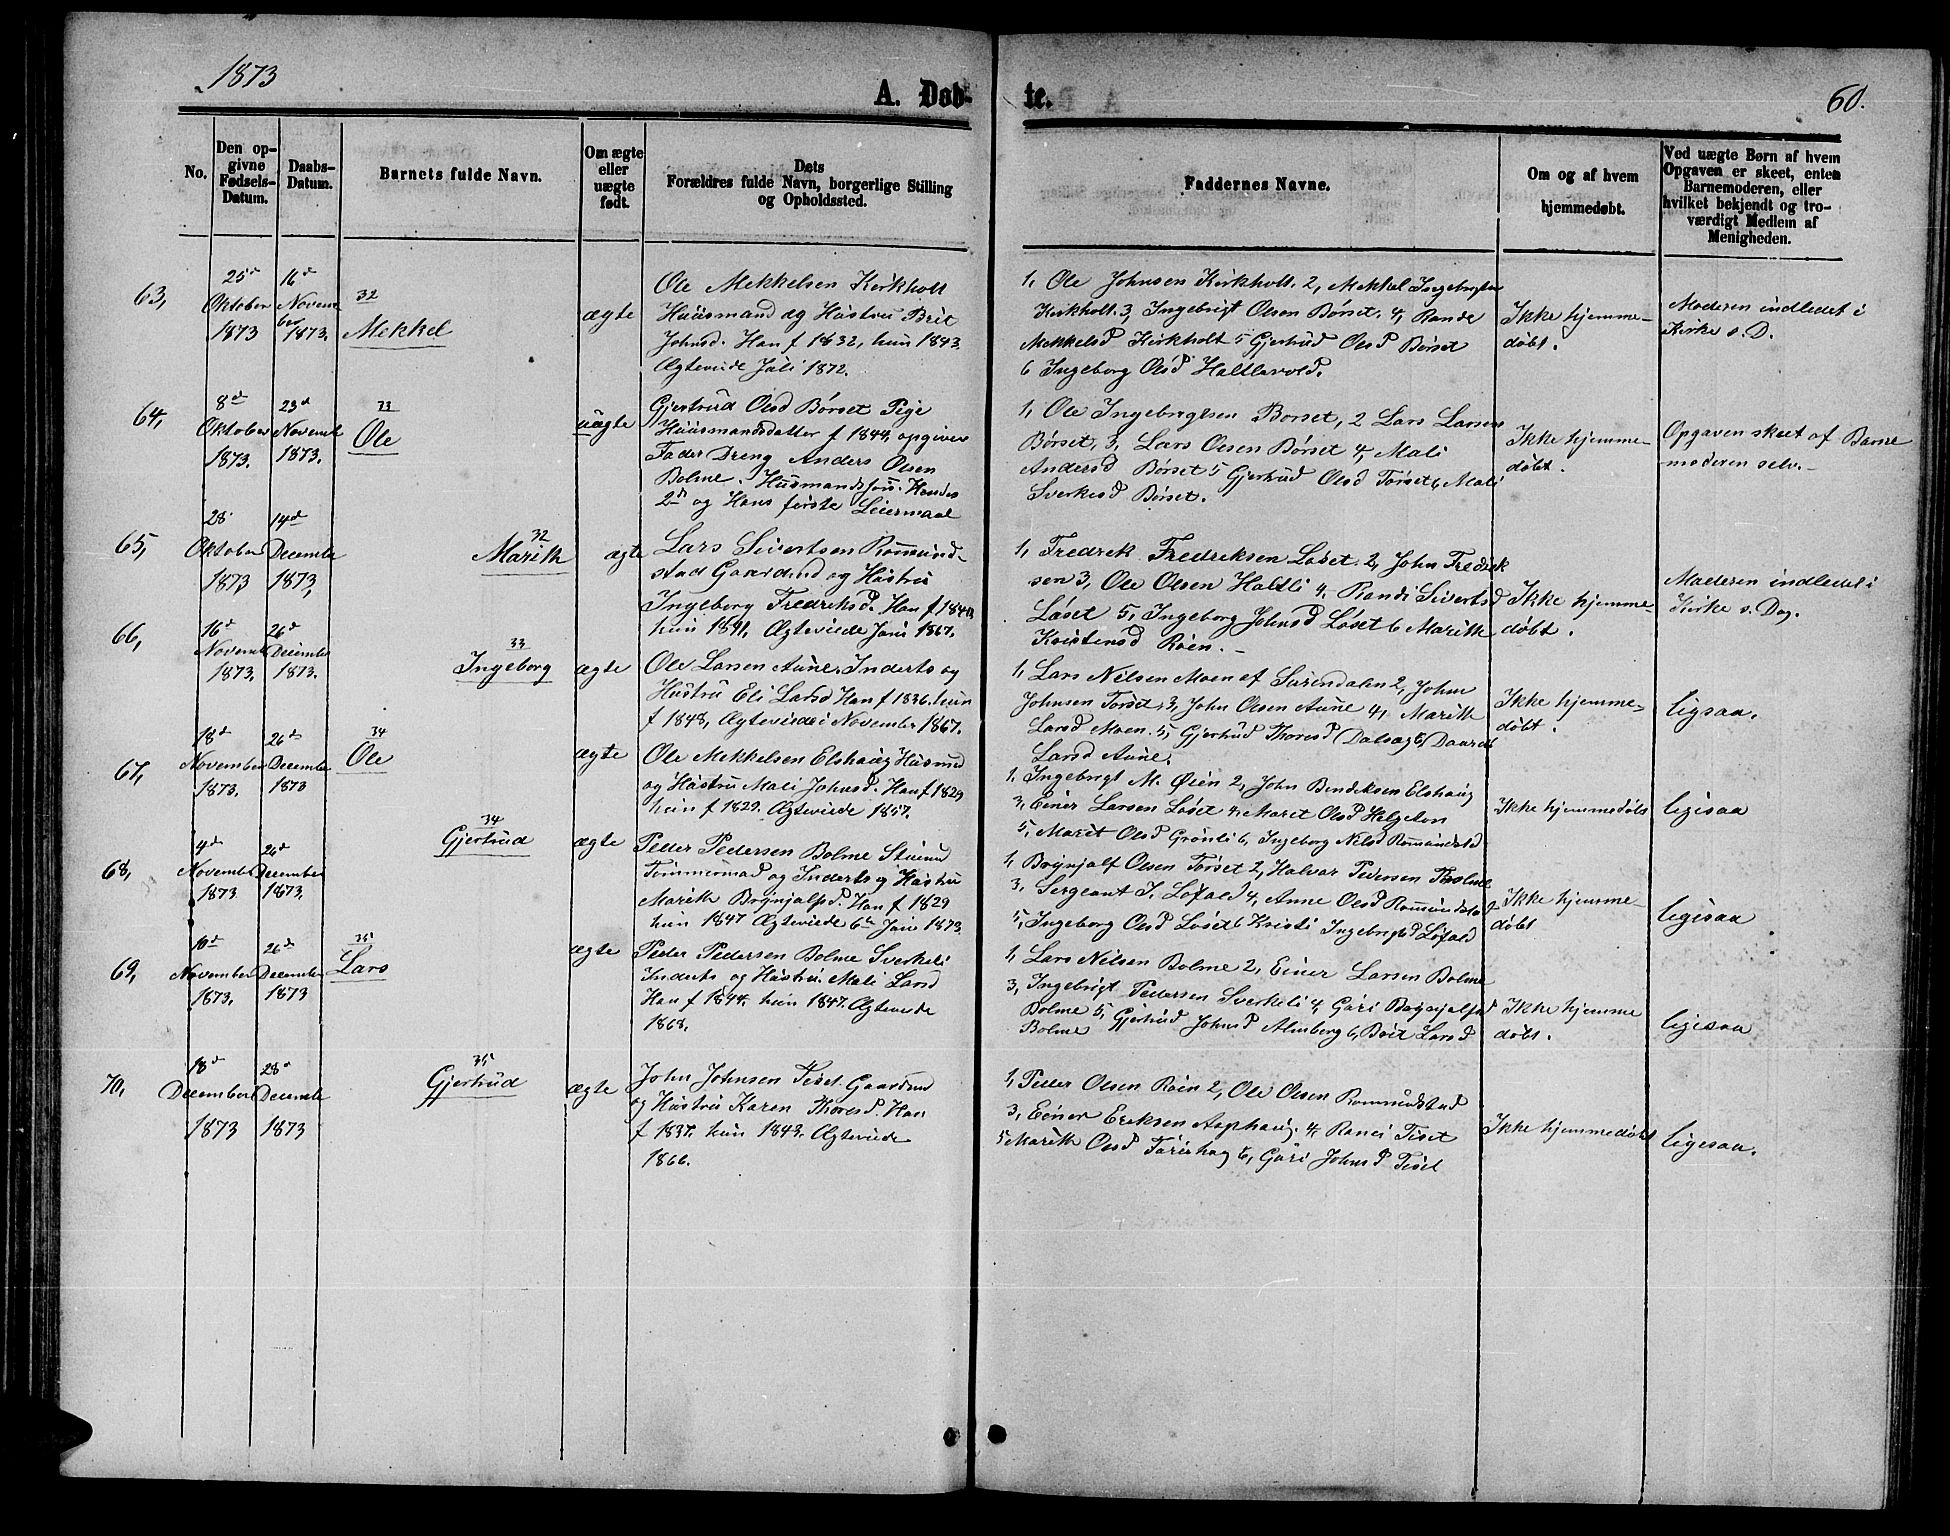 1873
A. Døb-
te.
60.
No.
Den op-
givne
Fødsels-
Datum.
Daabs-
Datum.
Barnets fulde Navn.
Om ægte
eller
uægte
født.
Dets
Forældres fulde Navn, borgerlige Stilling
og Opholdssted.
Faddernes Navne.
Om og af hvem
hjemmedøbt.
Ved uægte Børn af hvem
Opgaven er skeet, enten
Barnemoderen, eller
hvilket bekjendt og tro-
værdigt Medlem af
Menigheden.
63,
25d
Oktober
1873
16d
Novem
ber
1873.
32
Mekkel
ægte
Ole Mekkelsen Kirkholt
Huusmand og Hustru Brit
Johnsd. Han f 1832, hun 1843.
Ægteviede Juli 1872.
1, Ole Johnsen Kirkholt. 2, Mekkel Ingebrigtsn
Kirkholt. 3, Ingebrigt Olsen Børset. 4, Rande
Mekkelsd Kirkholt 5 Gjertrud Olsd Børset
6 Ingeborg Olsd Haltlavold.
Ikke hjemme-
døbt.
Moderen indledet i
Kirke s. D.
64,
8de
Oktober
1873.
23d
Novemb
1873.
33
Ole
uægte
Gjertrud Olsd Børset Pige
Huusmandsdatter f 1844, opgiver
Fader Dreng Anders Olsen
Bolme. Husmandsføs. Hendes
2d og Hans første Leiermaal
1, Ole Ingebrigtsen Børset, 2 Lars Larsen
Børset, 3, Lars Olsen Børset 4, Mali
Andersd Børset 5 Gjertrud Olsd Torset 6, Mali
Sverkesd Børset.
Ikke hjemme-
døbt.
Opgaven skeet af Barne
moderen selv.-
65,
28
Oktober
1873
14d
December
1873,
32
Marith
ægte
Lars Sivertsen Romund-
stad Gaardmd og Hustru
Ingeborg Fredriksd. Han f. 1840,
hun 1841, Ægteviede Juni 1867.
1, Fredrik Fredriksen Løset. 2, John Fredrik
sen 3, Ole Olsen Haltli 4, Randi Sivertsd
Løset 5, Ingeborg Johnsd Løset 6 Marith
Kristensd Røen. -
Ikke hjemme
døbt.
Moderen indledet i
Kirke s. Dag.
66,
16d
Novemb
1873.
26d
December
1873.
33
Ingeborg
ægte
Ole Larsen Aune. Inderts og
Hustru Eli Larsd Han f 1836. hun
f 1848, Ægteviede i November 1867.
1, Lars Nilsen Moen af Surendalen 2, John
Johnsen Torset, 3, John Olsen Aune 4, Marith
Larsd Moen. 5, Gjertrud Thoresd Dalsag 6, Daaret
Larsd Aune.
Ikke hjemme-
døbt.
ligsaa.
67,
18d
November
1873.
26de
December
1873
34
Ole
ægte
Ole Mekkelsen Elshaug Husmd
og Hustru Mali Johnsd. Han f 1829
hun f 1829. Ægteviede 1857.
1, Ingebrigt M. Øien 2, John Bendiksen Elshaug
3, Einer Larsen Løset 4, Maret Olsd Helgeton
5, Marit Olsd Grønli 6, Ingeborg Nilsd Romundstad
Ikke hjemmedøbt
ligesaa
68,
4d
November
1873.
26d
December
1873.
34
Gjertrud
ægte
Peder Pedersen Bolme
Tømmermad og Inderts og Hustru
Marith Brynjulfsd. Han f 1829
hun 1847 Ægteviede 6te Juni 1873.
1, Brynjolf Olsen Torset 2, Halvar Pedersen Bolme
3, Sergeant I. Løfald 4, Anne Olsd Romundstad
5, Ingeborg Olsd Løset 6 Kristi Ingebrigtsd Løfald
Ikke hjemme-
døbt
ligesaa
69,
10d
November
1873.
26de
December
1873
35
Lars
ægte
Peder Pedersen Bolme Sverkeli
Inderts og Hustru. Mali Larsd
Han f 1844. hun 1847. Ægteviede
1868.
1, Lars Nilsen Bolme 2, Einer Larsen Bolme
3, Ingebrigt Pedersen Sverkeli 4, Guri Brynjulfsd
Bolme 5, Gjertrud Johnsd Almberg 6, Brit Larsd
Bolme
Ikke hjemme
døbt.
ligesaa
70,
18d
December
1873
28d
Decembe
1873
35
Gjertrud
ægte
John Johnsen Tiset. Gaardmd
og Hustru Karen Thoresd. Han
f 1837. hun 1843. Ægteviede
1866.
1, Peder Olsen Røen 2, Ole Olsen Romundstad
3, Einer Eriksen Asphaug. 4, Ranei Tiset
5 Marith Olsd 6, Guri Johnsd Tiset
Ikke hjemmedøbt
ligesaa.